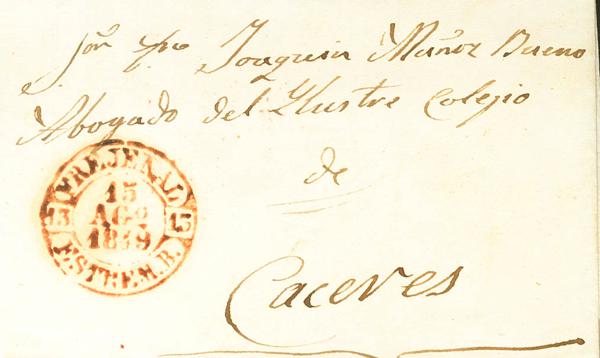 Joaquin Muñoz Bueno
Abogado del Ylustre Colegio
de
Caceres
FREJENAL
15
AGO
1849
13 13
ESTREM.B.